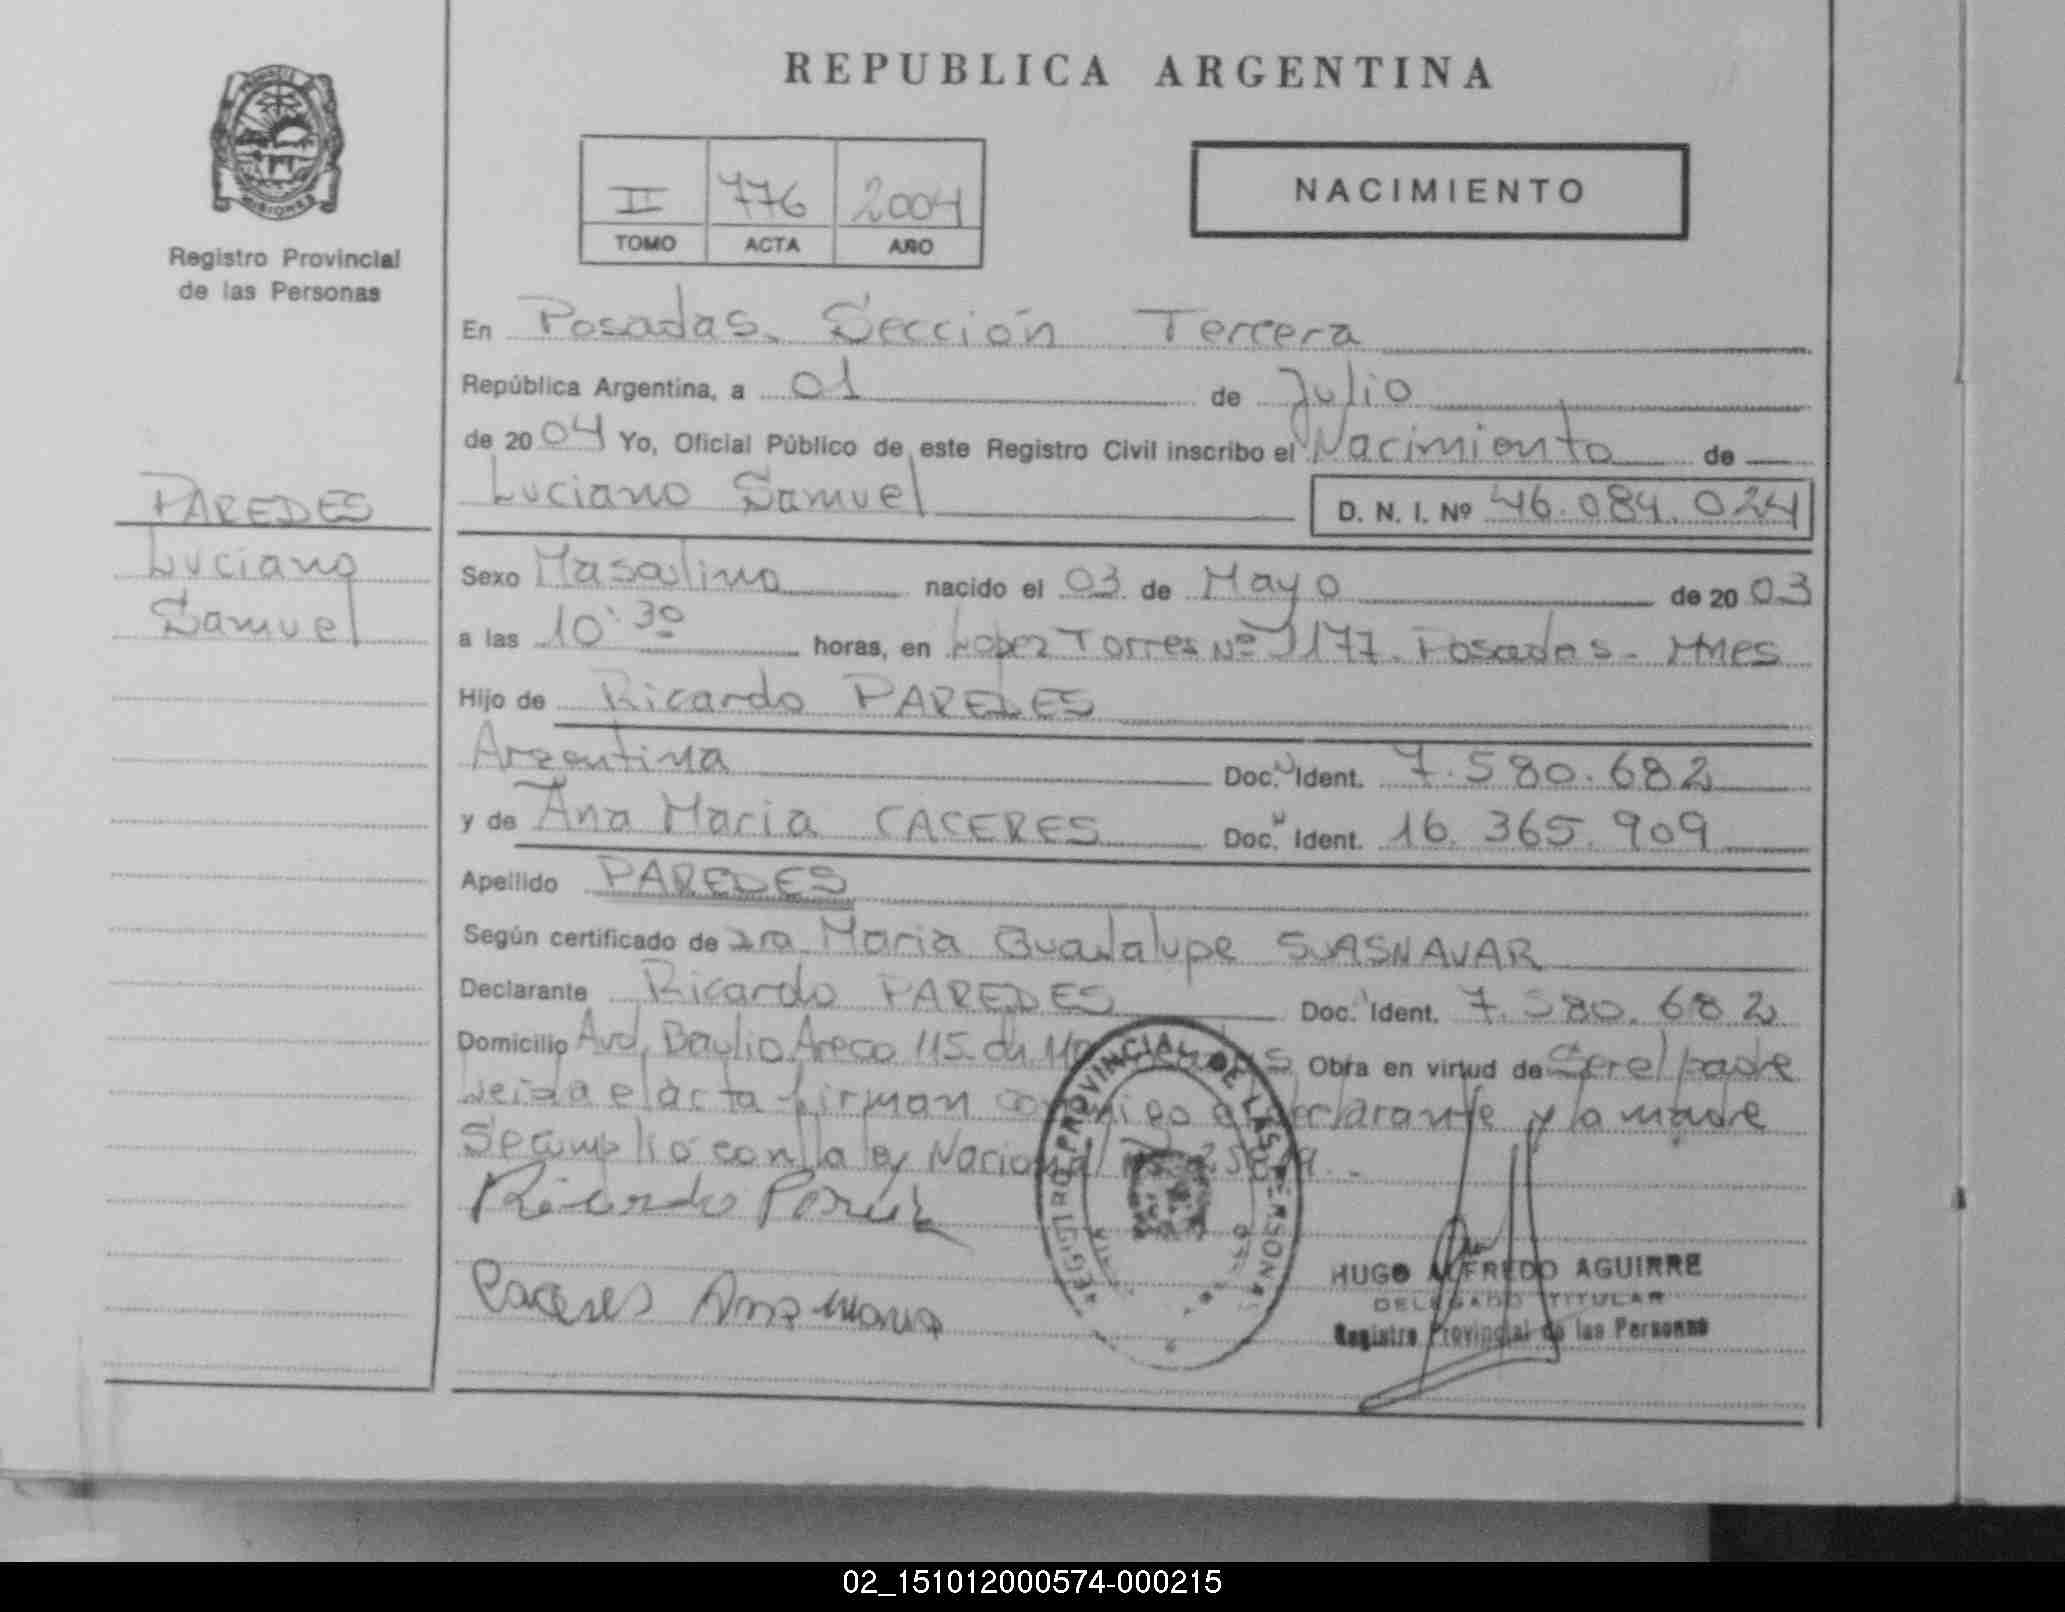 REPUBLICA ARGENTINA
MISIONES
Registro Provincial
de las Personas
II 776 2004
TOMO ACTA AÑO
NACIMIENTO
En Posadas. Sección Tercera
República Argentina, a 01 de Julio
de 2004 Yo, Oficial Público de este Registro Civil inscribo el Nacimiento de
Luciano Samuel D. N. I. Nº 46.084.024
PAREDES
Luciano
Samuel
Sexo Masculino nacido el 03 de Mayo de 2003
a las 10:30 horas, en Lopez Torres Nº 1177. Posadas - Mnes
Hijo de Ricardo PAREDES
Argentina Doc. Ident. 7.580.682
y de Ana Maria CACERES Doc. Ident. 16.365.909
Apellido PAREDES
Según certificado de Dra Maria Guadalupe SUASNAVAR
Declarante Ricardo PAREDES Doc. Ident. 7.580.682
Domicilio Avd. Baulio Areco 115. Obra en virtud de Ser el padre
Leida el acta firman conmigo el declarante y la madre
Se cumplió con la ley Nacional
Ricardo
Caceres Ana Maria
REGISTRO PROVINCIAL DE LAS PERSONAS
HUGO ALFREDO AGUIRRE
DELEGADO TITULAR
Registro Provincial de las Personas
02_151012000574-000215